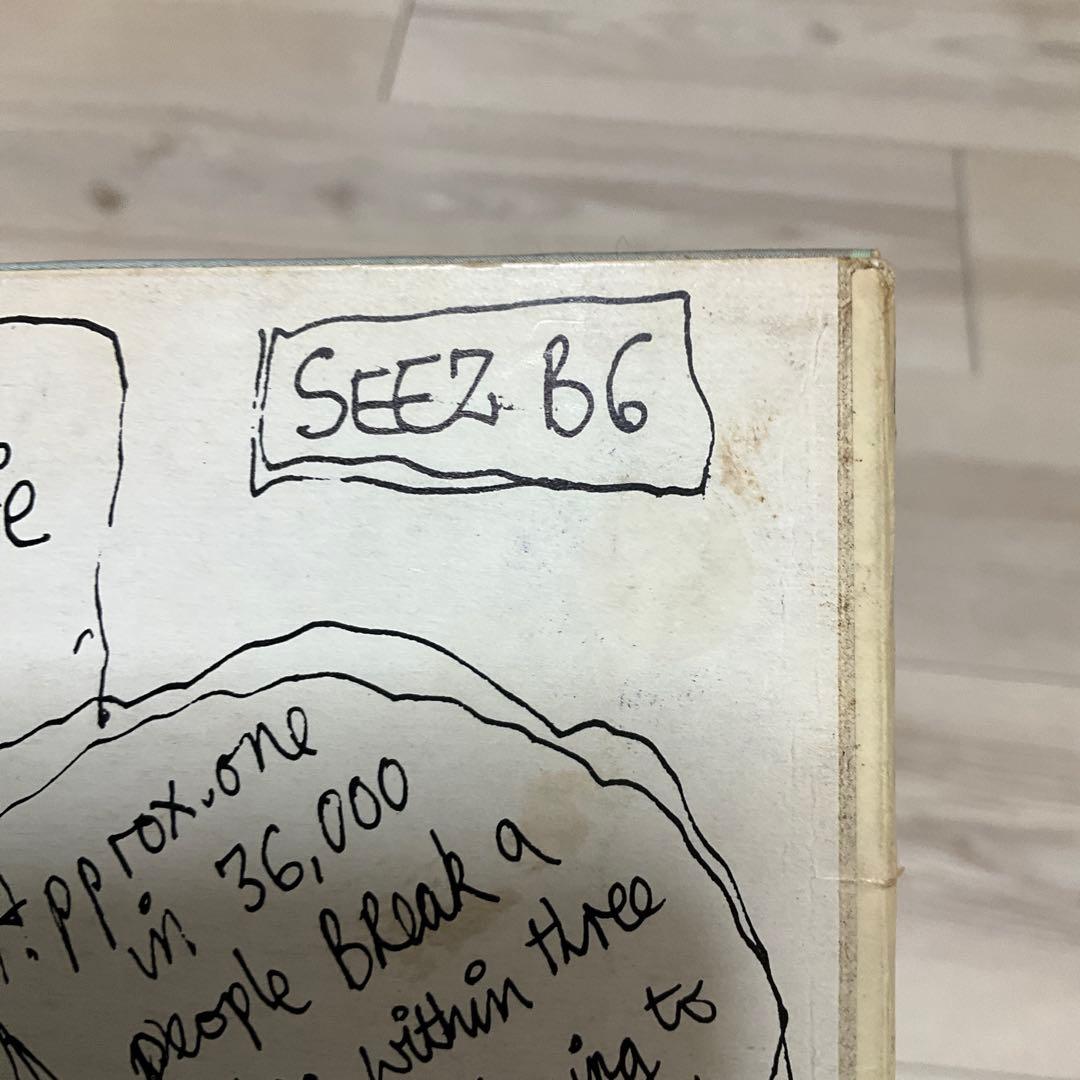 SEEZ B6
e
Approx. one
in 36,000
people Break a
within three
ing to